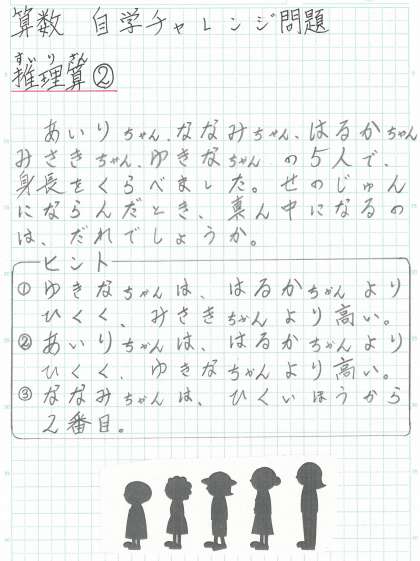 算数 自学チャレンジ問題
すいりさん
推理算②
あいりちゃん、ななみちゃん、はるかちゃん
みさきちゃん、ゆきなちゃん の5人で、
身長をくらべました。せのじゅん
にならんだとき、真ん中になるの
は、だれでしょうか。
ヒント
① ゆきなちゃんは、はるかちゃんより
ひくく、みさきちゃんより高い。
② あいりちゃんは、はるかちゃんより
ひくく、ゆきなちゃんより高い。
③ ななみちゃんは、ひくいほうから
2番目。